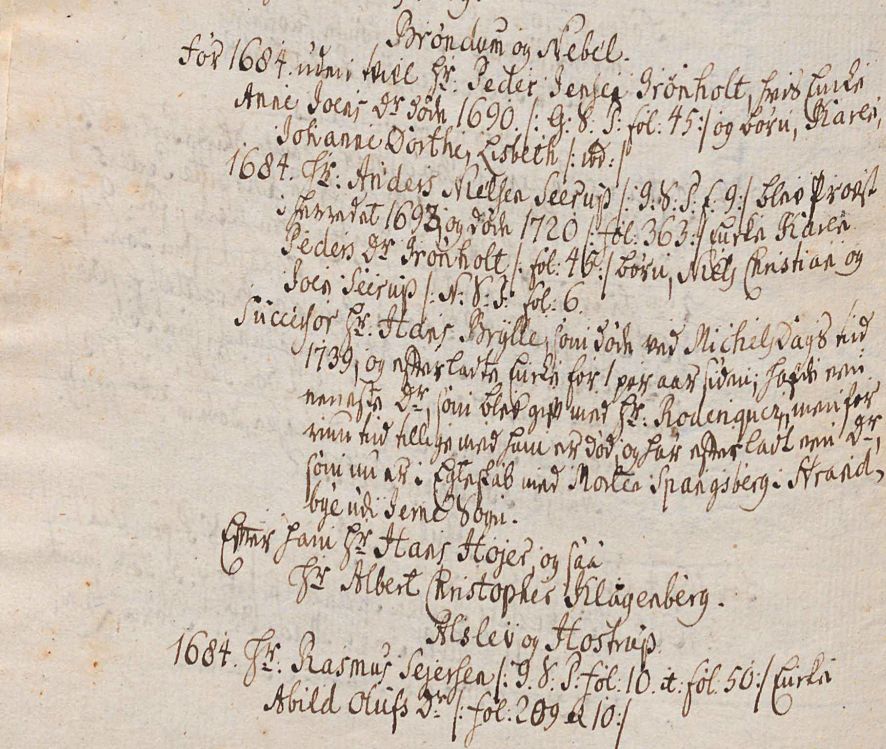 Brøndum og Nebel.
før 1684. uden tvil Hr. Peder Jensen Grønholt, hvis Encke
Anne Joens Dr. døde 1690. /: G: S. P: fol: 45:/ og børn, Karen,
Johanne, Dorthe, Lisbeth /: ibd:/
1684. Hr. Anders Nielsen Seerup /: G. S. P. f. 9:/ blev Provst
i Herredet 1693, og døde 1720 /: fol: 363:/ Encke Karen
Peders Dr. Grønholt, /: fol: 45:/ børn, Niels, Christian og
Joen Seerup /: N: S: P: fol: 6.
Successor Hr. Hans Brylle, som døde ved Michels Dags tid
1739, og efterladte Encke for 1 par aar siden; hafde een
eeneste Dr., som blev gift med Hr. Roderiquez, men for
rum tid tillige med ham er død, og har efterladt een Dr,
som nu er i Egteskab med Morten Spangsberg i Strand-
bye udi Jerne Sogn.
Efter ham Hr. Hans Høyer, og saa
Hr. Albert Christopher Klagenberg.
Alslev og Hostrup.
1684. Hr. Rasmus Sejersen /: G. S. P. fol: 10. it: fol: 50:/ Encke
Abild Olufs Dr. /: fol: 209 10:/